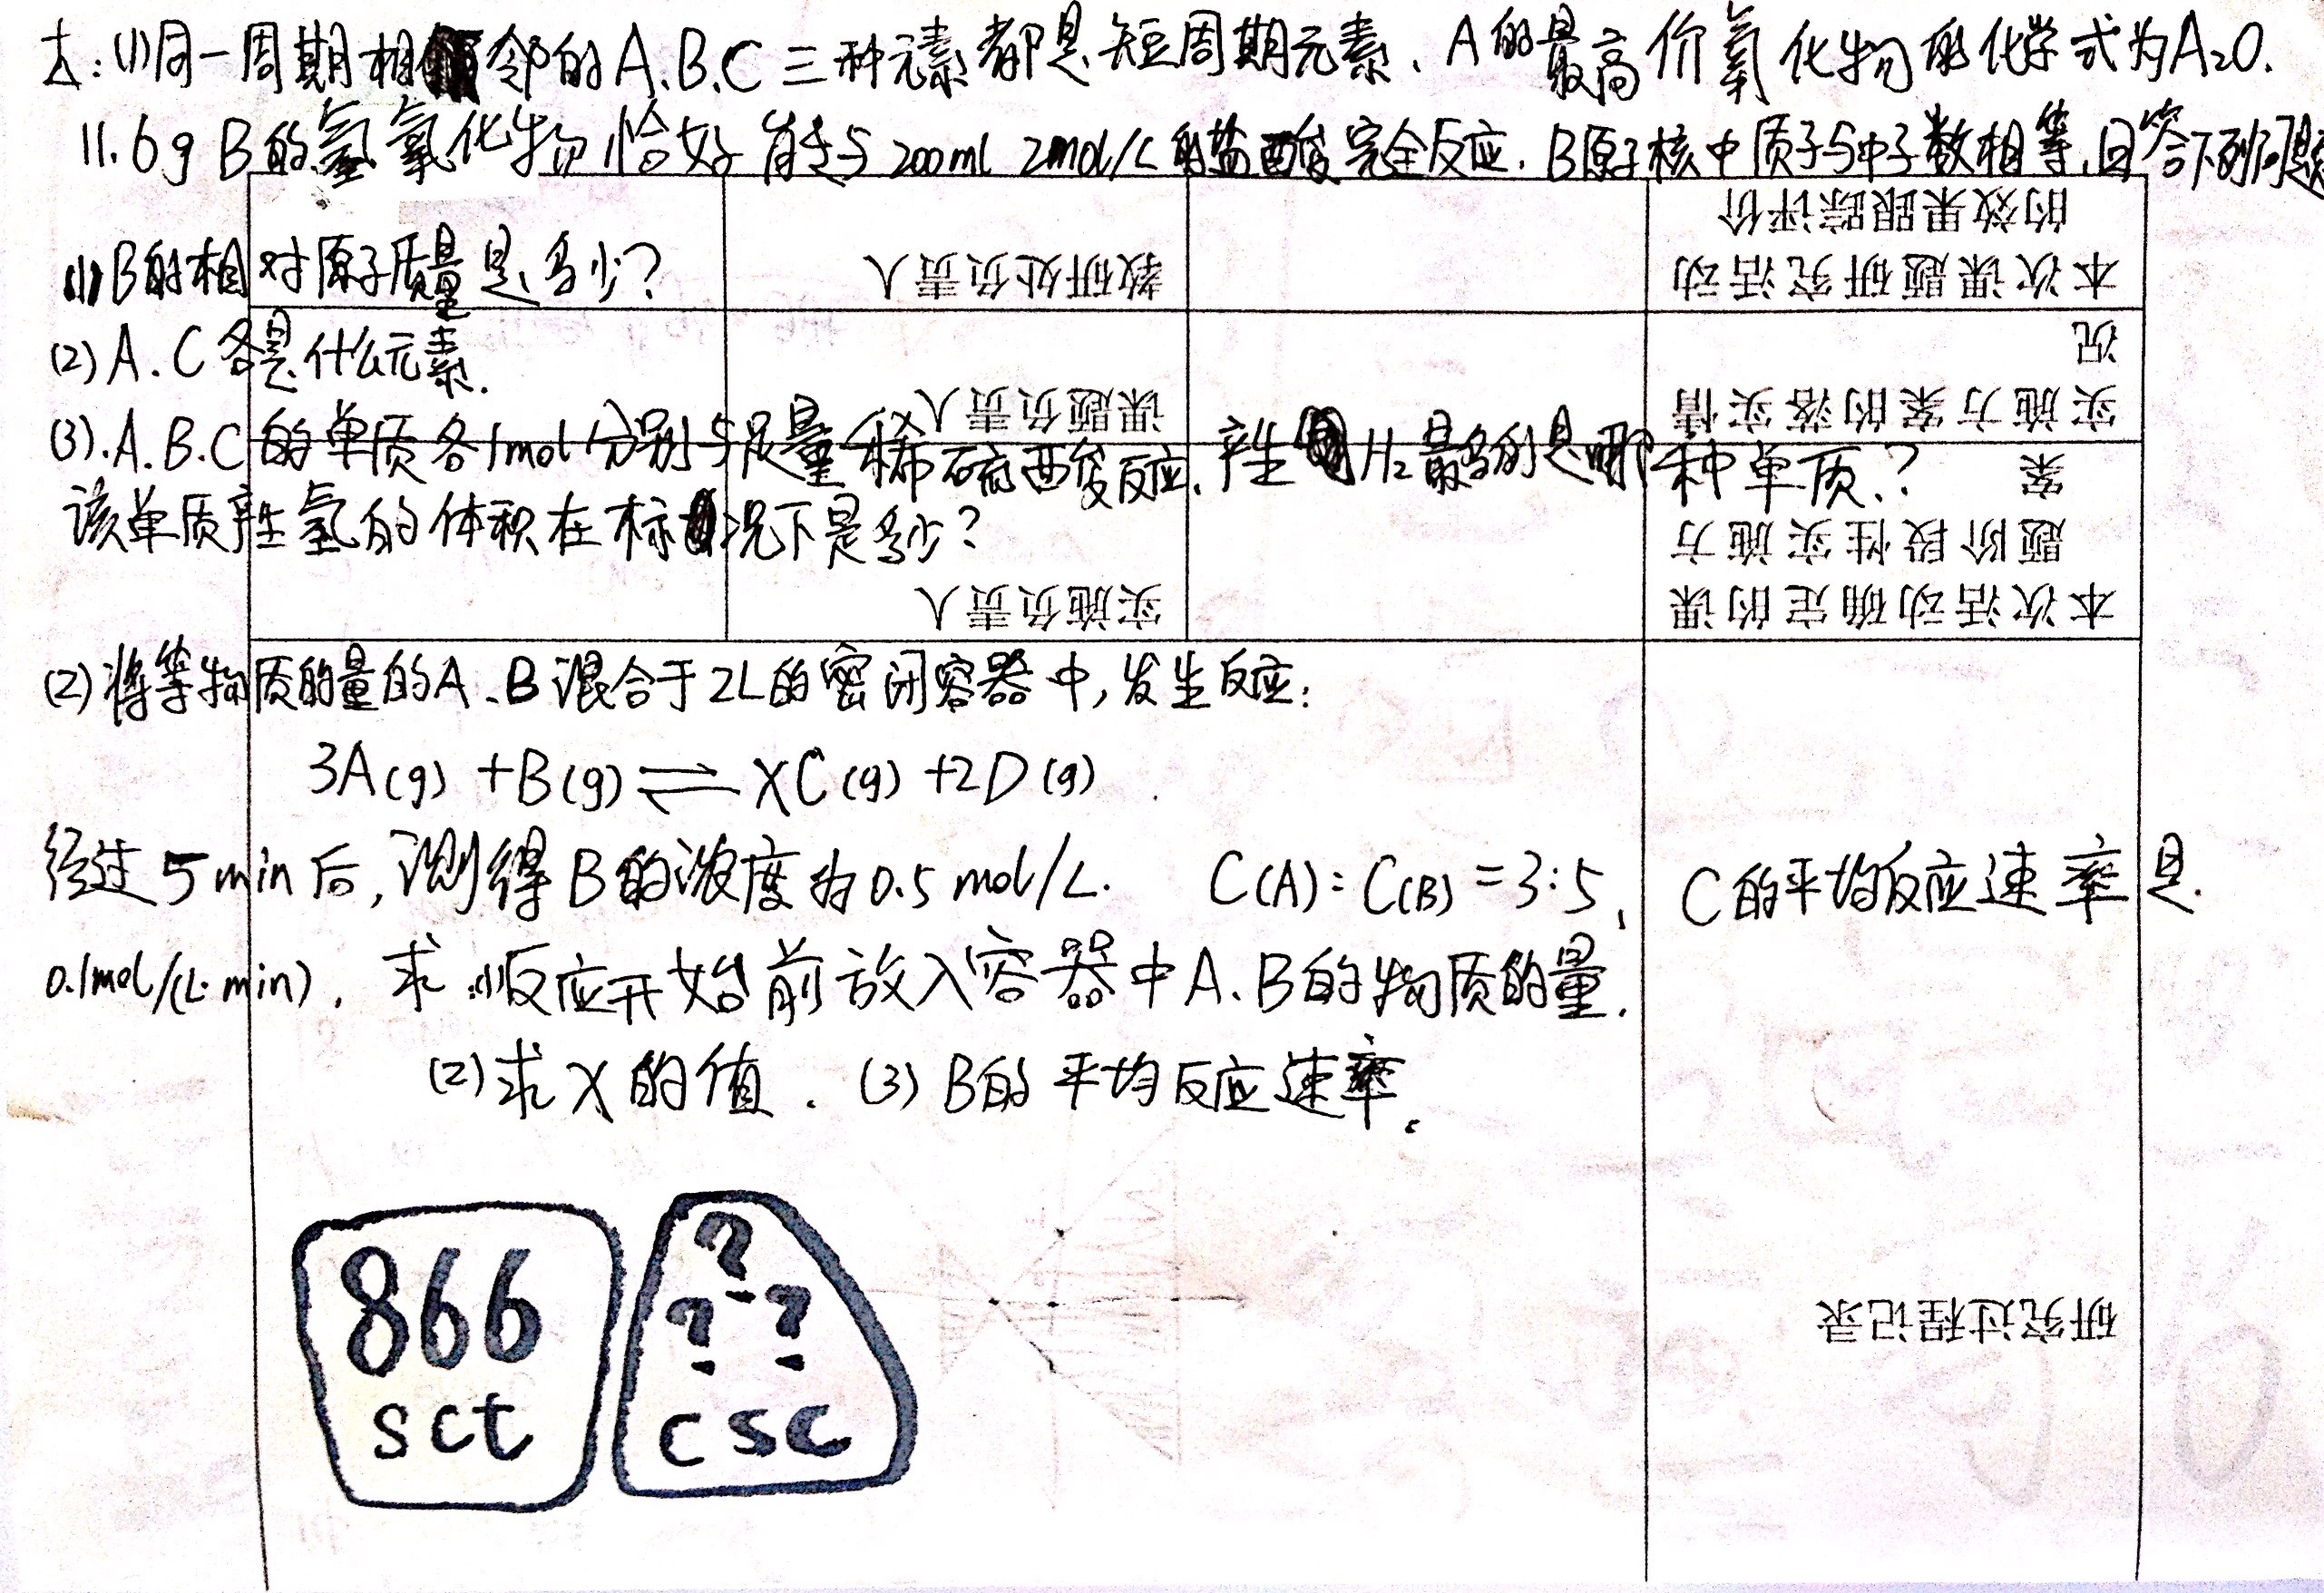 去:(1)同一周期相邻的A.B.C三种元素都是短周期元素、A的最高价氧化物的化学式为A₂O.
11.6g B的氢氧化物恰好能与200ml 2mol/L的盐酸完全反应.B原子核中质子与中子数相等,回答下列问题
(1)B的相对原子质量是多少?
(2)A.C各是什么元素.
(3).A.B.C的单质各1mol分别与足量稀硫酸反应.产生H₂最多的是哪种单质.?
该单质产生氢的体积在标况下是多少?
(2)将等物质的量的A.B混合于2L的密闭容器中,发生反应:
3A(g)+B(g)⇌XC(g)+2D(g)
经过5min后,测得B的浓度为0.5mol/L. C(A):C(B)=3:5、C的平均反应速率是.
0.1mol/(L·min).求.(1)反应开始前放入容器中A.B的物质的量.
(2)求X的值.(3)B的平均反应速率.
866
sct
?
? ?
csc
研究过程记录
本次活动确定的课
题阶段性实施方
案
实施负责人
实施方案的落实情
况
课题负责人
本次课题研究活动
的效果跟踪评价
教研处负责人